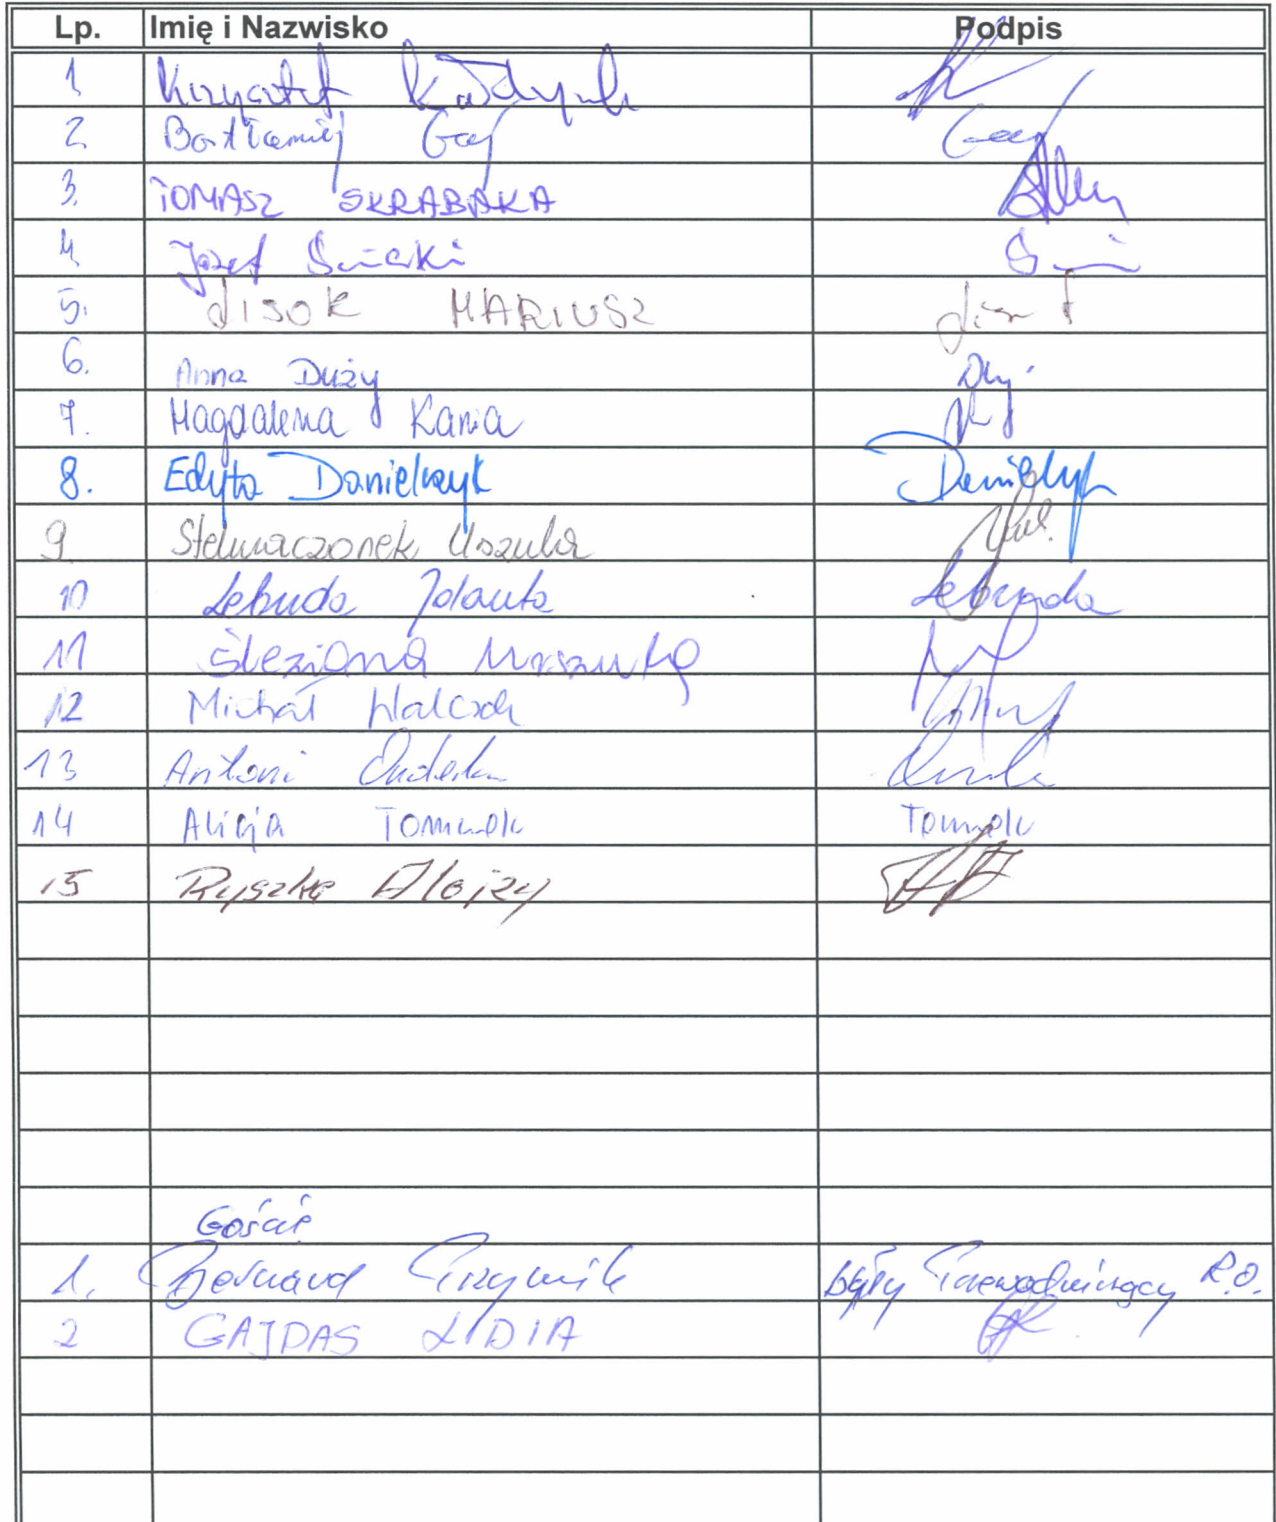 Lp. Imię i Nazwisko Podpis
1 Krzysztof
2. Bartłomiej Gaj Gaj
3. TOMASZ SKRABAKA
4. Józef
5. LISOK MARIUSZ
6. Anna Duży
7. Magdalena Kania
8. Edyta Danielczyk Danielczyk
9 Stelmaczonek Urszula
10 Lebuda Jolanta Lebuda
11 Śleziona Urszula
12 Michał Walczak
13 Antoni
14 Alicja Tomczok Tomczok
15 Ryszka Alojzy
Goście
1. Bernard były Przewodniczący R.O.
2 GAJDAS LIDIA